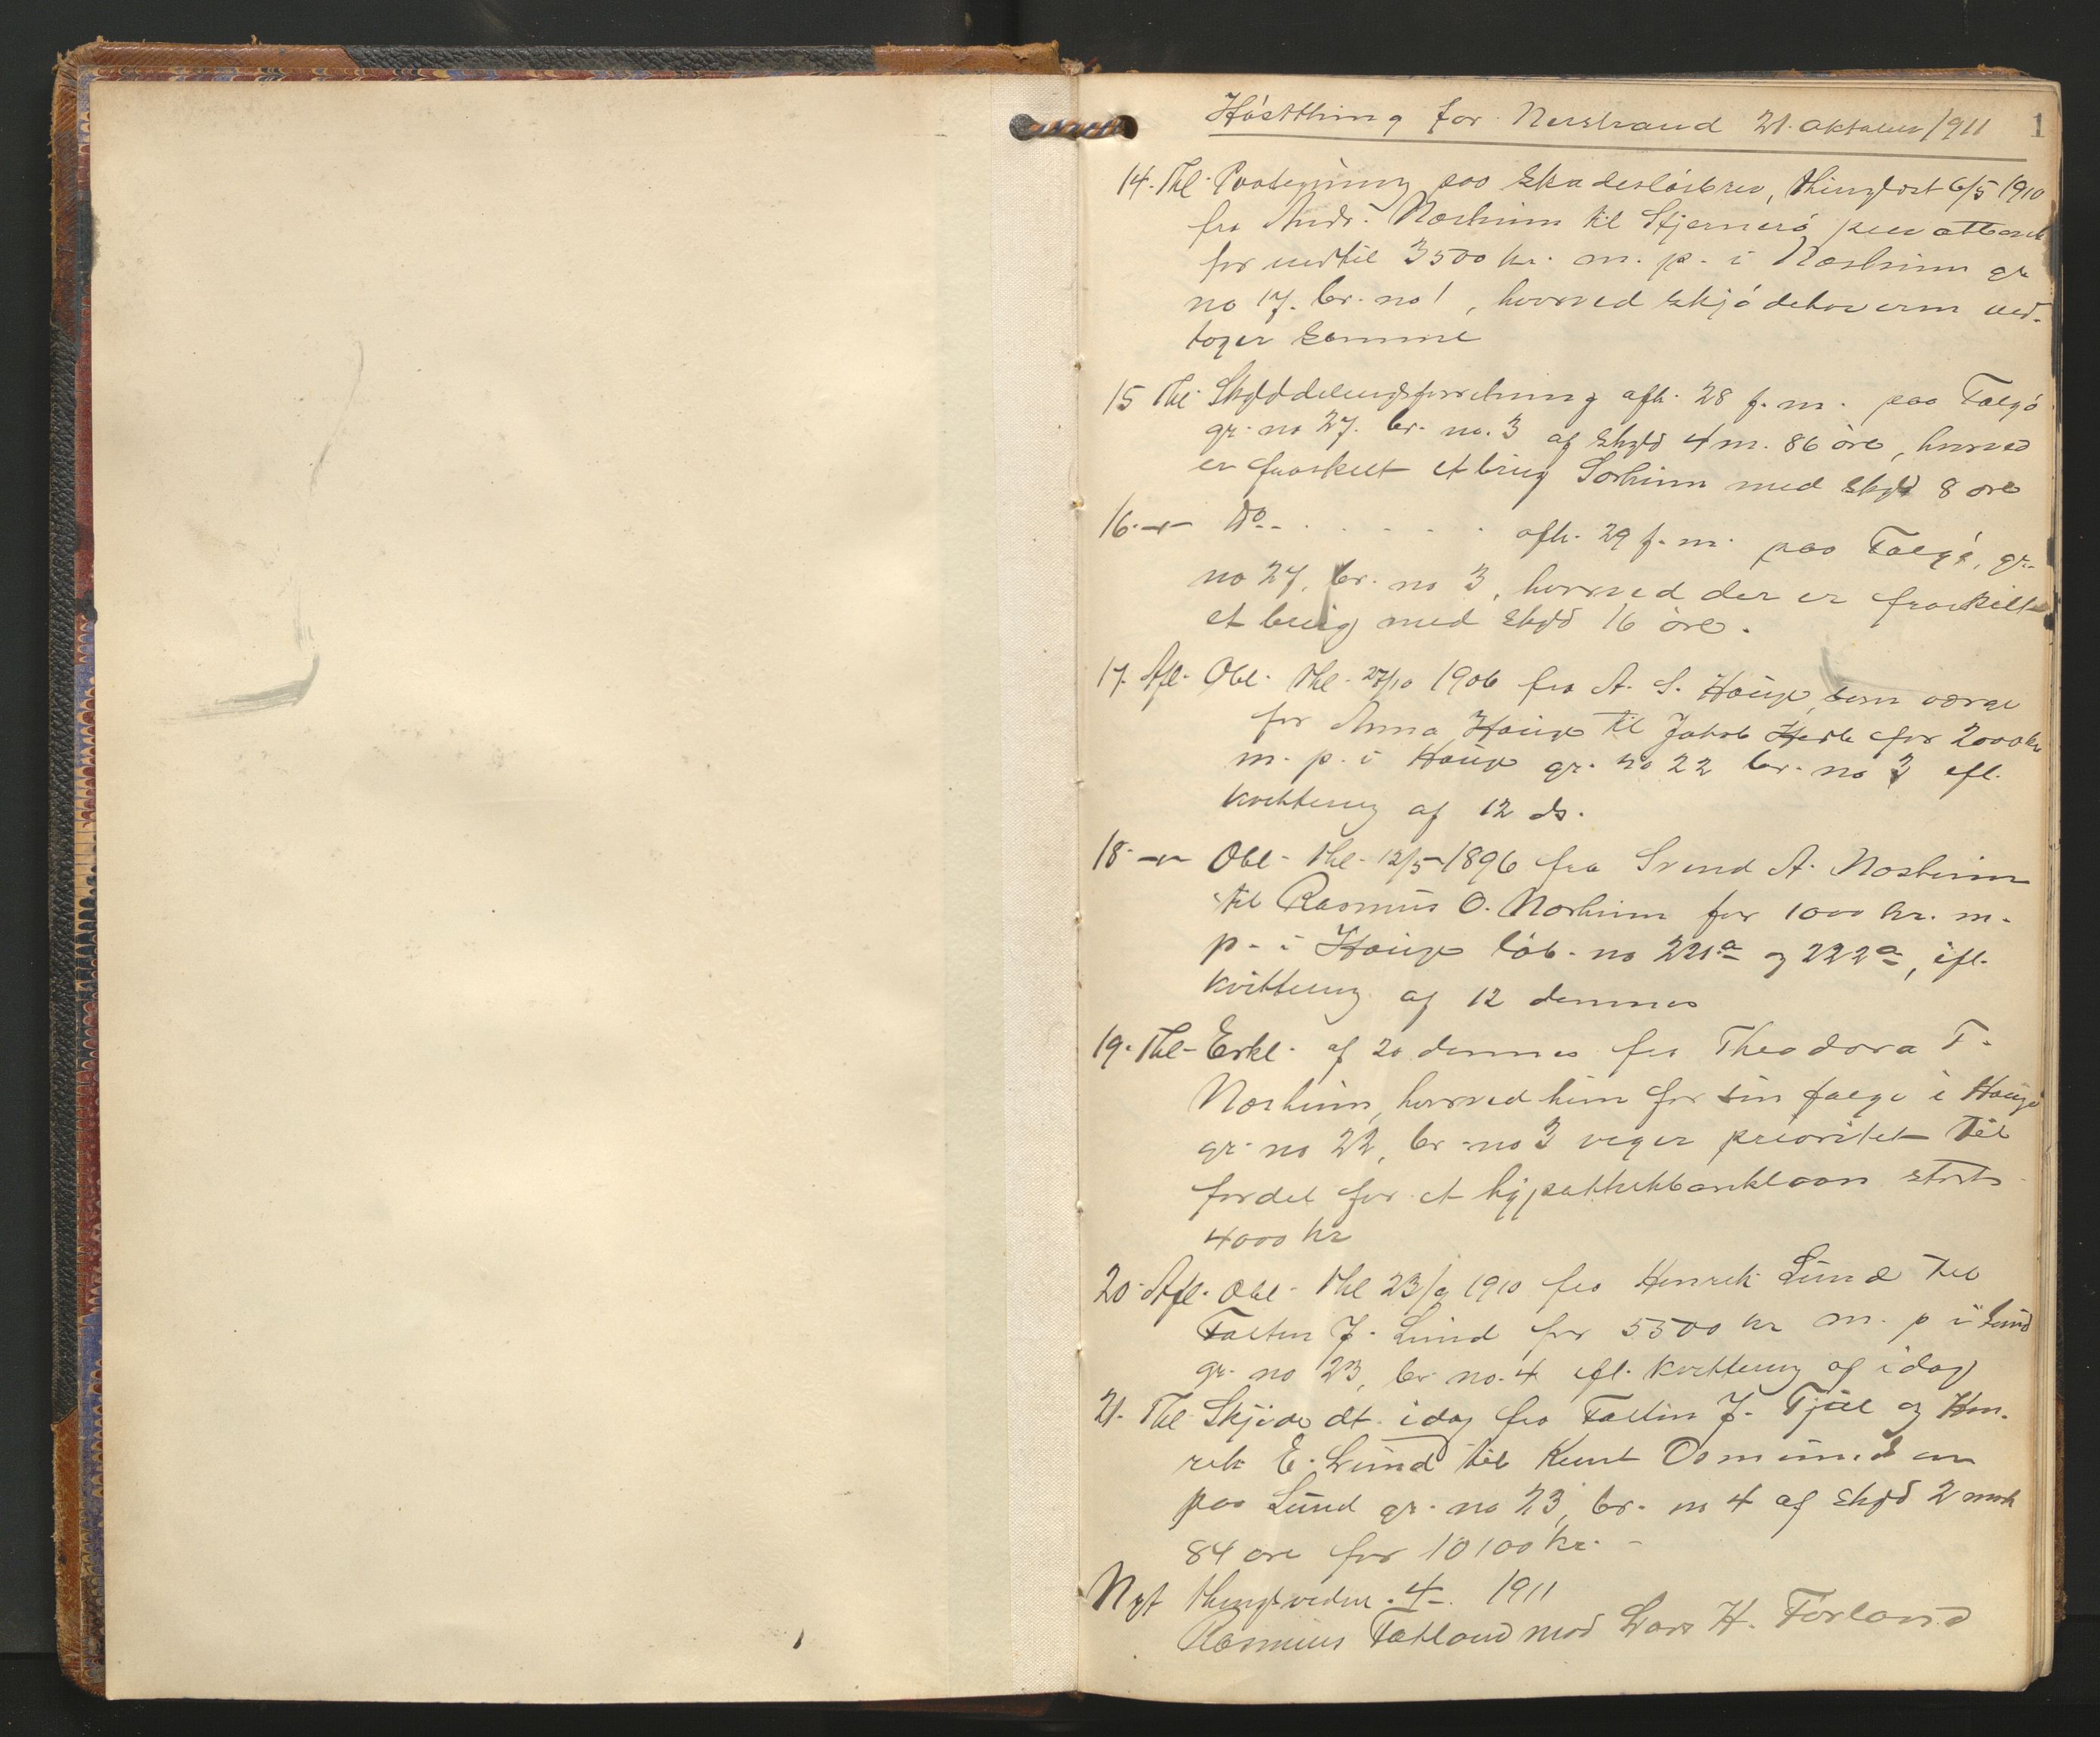 Høstthing for Nerstrand 21. oktober 1911 1
14. Thl. Paategning paa Skadesløsbrev, thinglæst 6/5 1910
fra Andr. Næsheim til Stjernerø privatbank
for indtil 3500 kr. m. p. i Næsheim gr
no 17. br. no 1, hvorved skjødehaveren ved-
tager samme
15 Thl. Skylddelingsforretning afh. 28 f. m. paa Talgø
gr. no 27. br. no. 3 af skyld 4 m. 86 øre, hvorved
er fraskilt et brug Sørheim med skyld 8 øre
16. -"- Do - . . . . . . afh. 29 f. m. paa Talgø, gr.
no 27, br. no 3, hvorved der er fraskilt
et brug med skyld 16 øre.
17. Afl. Obl. thl. 27/10 1906 fra A. S. Hauge, som værge
for Anna Hauge til Jakob for 2000 kr
m. p. i Hauge gr. no 22 br. no 3 ifl.
kvittering af 12 ds.
18 -"- Obl. thl. 12/5 1896 fra Svend A. Næsheim
til Rasmus O. Næsheim for 1000 kr. m.
p. i Hauge løb. no 221a og 222a, ifl.
kvittering af 12 dennes
19. Thl. Erkl. af 20 dennes fra Theodora T.
Næsheim, hvorved hun for sin følge i Hauge
gr. no 22, br. no 3 viger prioritet til
fordel for et hypothekbanklaan stort
4000 kr
20. Afl. Obl. thl 23/9 1910 fra Henrik Lund til
Faltin J. Lund for 5500 kr m. p i Lund
gr. no 23, br. no. 4 ifl. kvittering af idag
21. Thl. Skjøde dt. idag fra Faltin J. Tjul og Hen-
rik E. Lund til Knut Osmundsen
paa Lund gr. no 23, br. no 4 af skyld 2 mrk
84 øre for 10100 kr. -
Nyt thingsvidne. 4 -. 1911
Rasmus Fatland mod Lars H. Førland